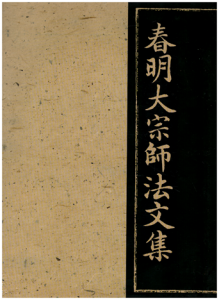 春明大宗師法文集